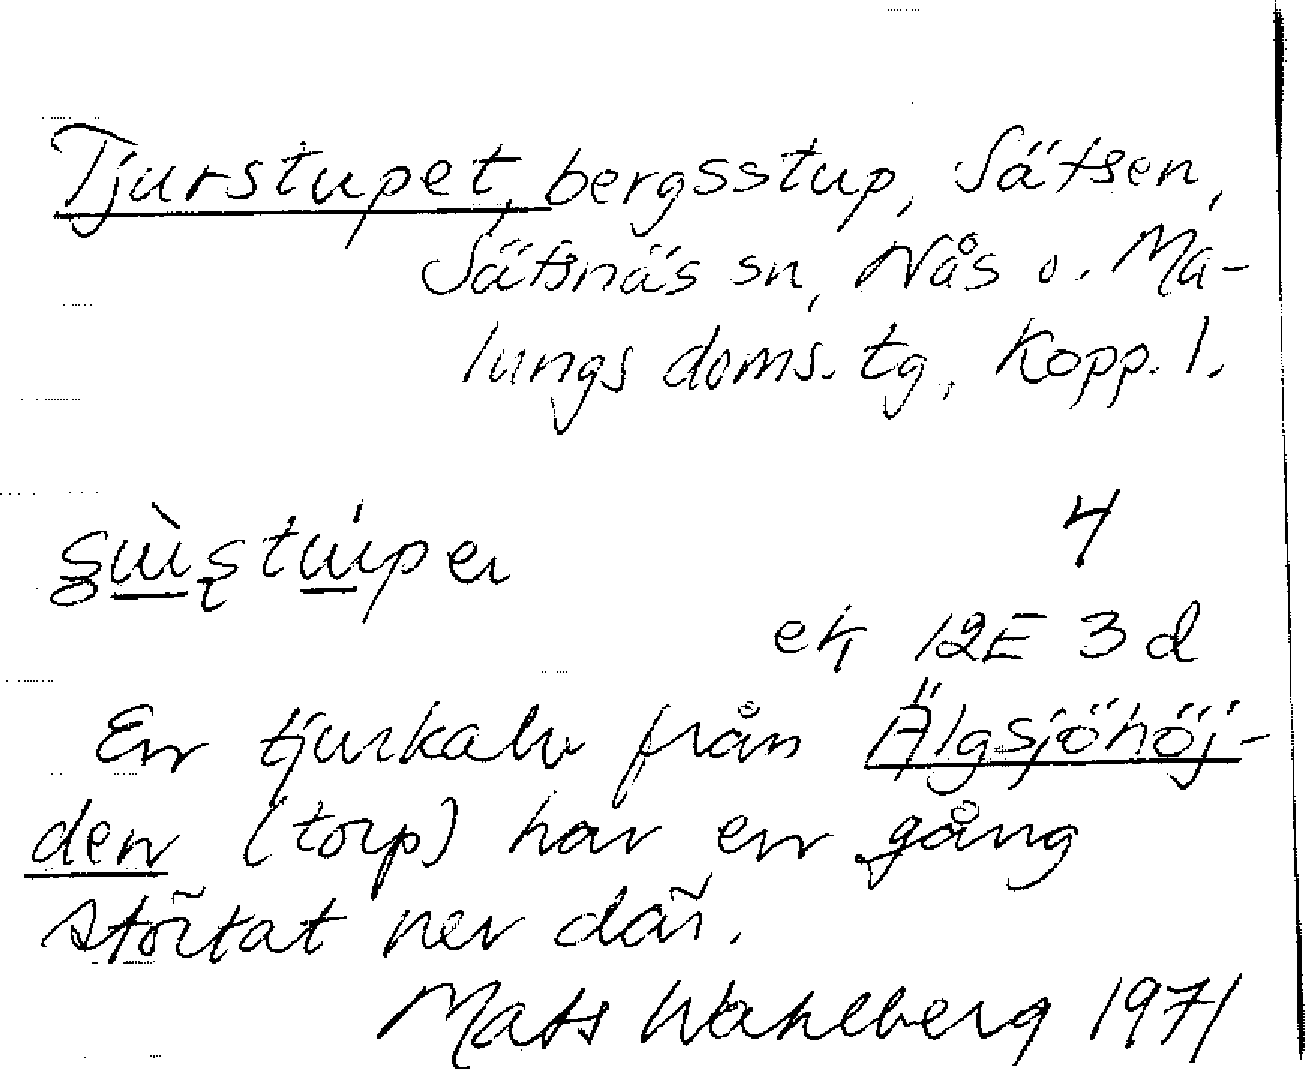 Tjurstupet, bergsstup, Sätsen,
Sätsnäs sn, Nås o. Ma-
lungs doms. tg, Kopp. l.
4
ek 12E 3d
En tjurkalv från Älgsjöhöj-
den (torp) har en gång
störtat ner där.
Mats Wahlberg 1971